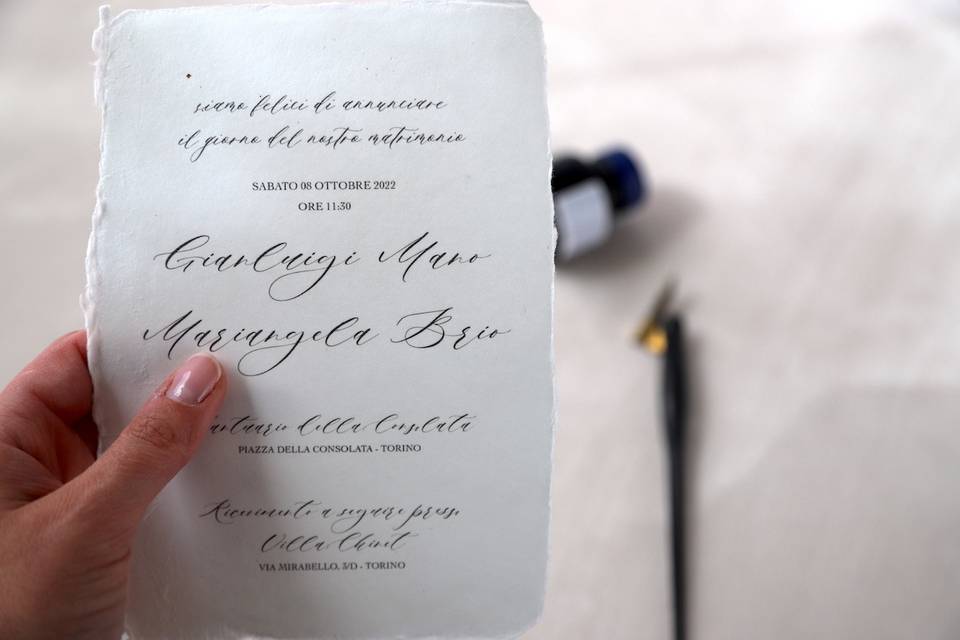 siamo felici di annunciare
il giorno del nostro matrimonio
SABATO 08 OTTOBRE 2022
ORE 11:30
Gianluigi Mano
Mariangela Brio
Santuario della Consolata
PIAZZA DELLA CONSOLATA - TORINO
Ricevimento a seguire presso
Villa
VIA MIRABELLO, 3/D - TORINO